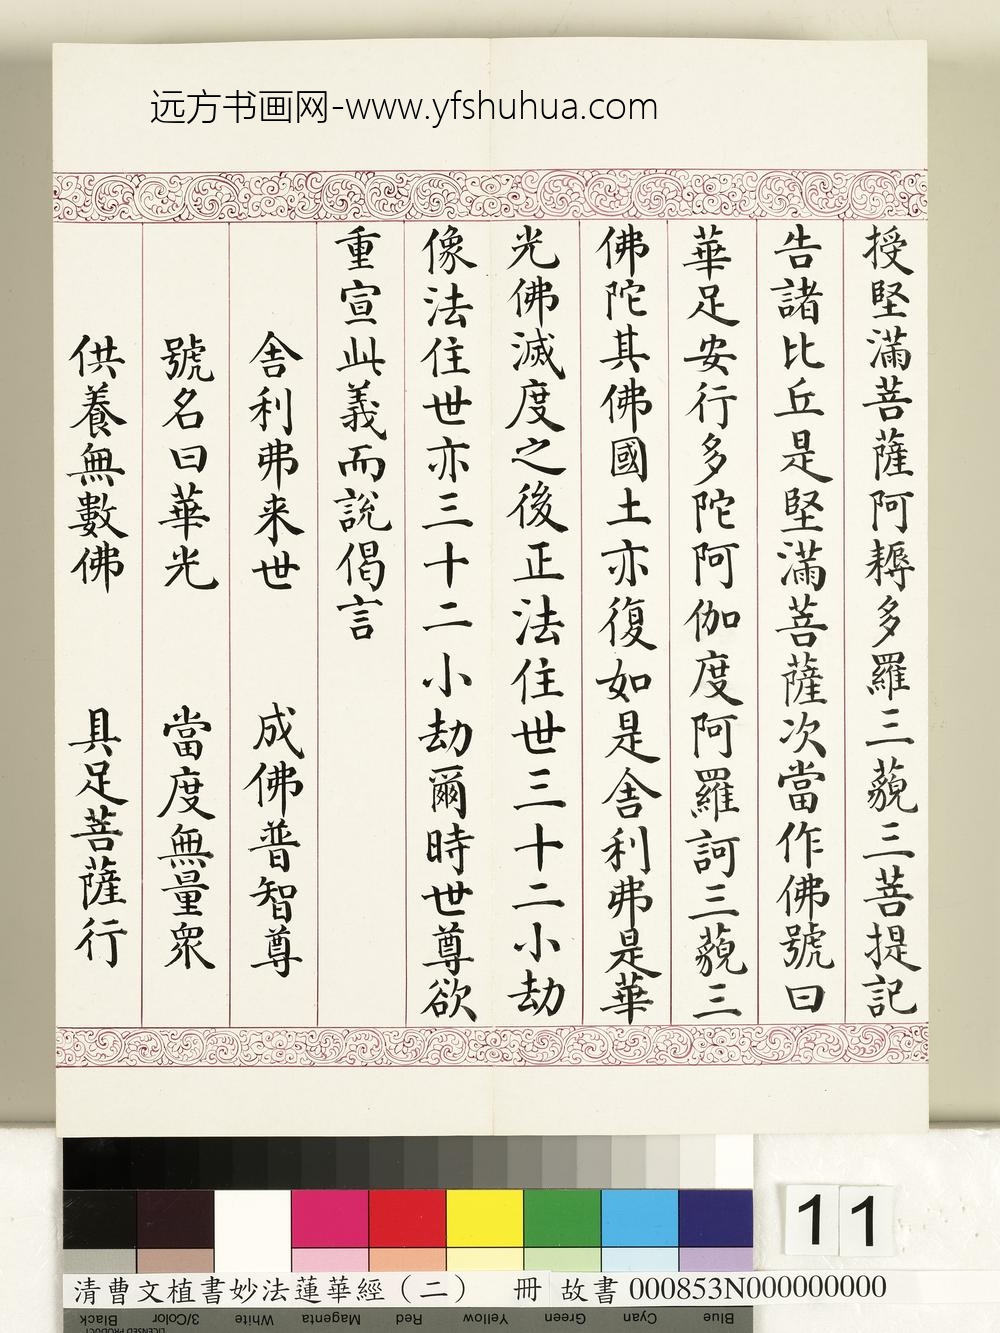 远方书画网-www.yfshuhua.com
授堅滿菩薩阿耨多羅三藐三菩提記
告諸比丘是堅滿菩薩次當作佛號曰
華足安行多陀阿伽度阿羅訶三藐三
佛陀其佛國土亦復如是舍利弗是華
光佛滅度之後正法住世三十二小劫
像法住世亦三十二小劫爾時世尊欲
重宣此義而說偈言
舍利弗来世 成佛普智尊
號名曰華光 當度無量眾
供養無數佛 具足菩薩行
11
清曹文植書妙法蓮華經（二） 冊 故書 000853N000000000
Black 3/Color White Magenta Red Yellow Green Cyan Blue
LICENSED PRODUCT